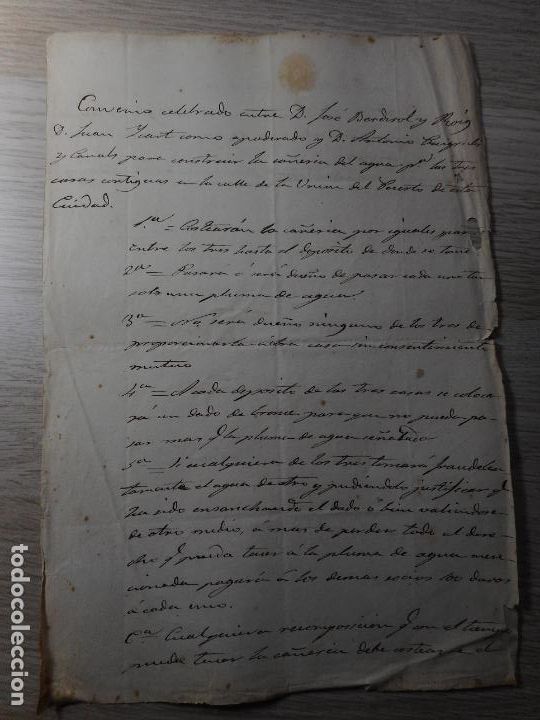 Convenio celebrado entre D. José Borderol y Roig
D. Juan Icart como apoderado y D. Antonio
y Canals para construir la cañeria del agua pª las tres
casas contiguas en la calle de la Union del Puerto de esta
Ciudad.
1.ª = Costearán la cañeria por iguales par
entre los tres hasta el deposito de donde se tome
2ª = Pasara ó será dueño de pasar cada uno tan
solo una pluma de agua.
3ª = No será dueño ninguno de los tres de
proporcionarla á otra casa sin consentimiento
mutuo
4ª = A cada deposito de las tres casas se coloca
rá un dado de bronce para que no pueda pa
sar mas q la pluma de agua
5ª = Si cualquiera de los tres tomará fraudulen
tamente el agua de otro y pudiendo justificar q
ha sido ensanchando el dado ó bien valiendose
de otro medio, á mas de perder todo el dere
cho q pueda tener á la pluma de agua men
cionada pagará á los demas socios 100 duros
á cada uno.
6ª Cualquiera recomposicion q con el tiempo
puede tener la cañeria debe costearse el
todocoleccion.com